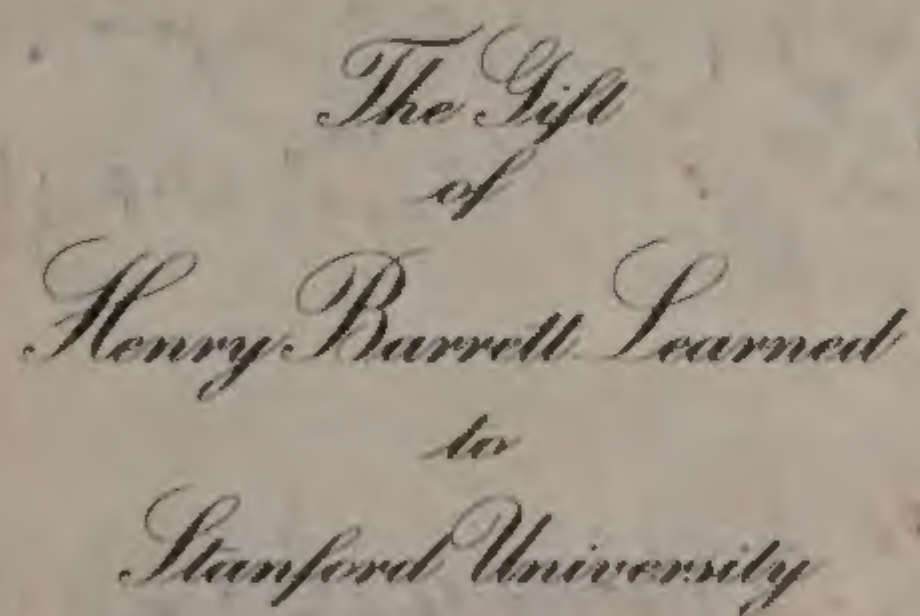 The Gift
of
Henry Barrett Learned
to
Stanford University